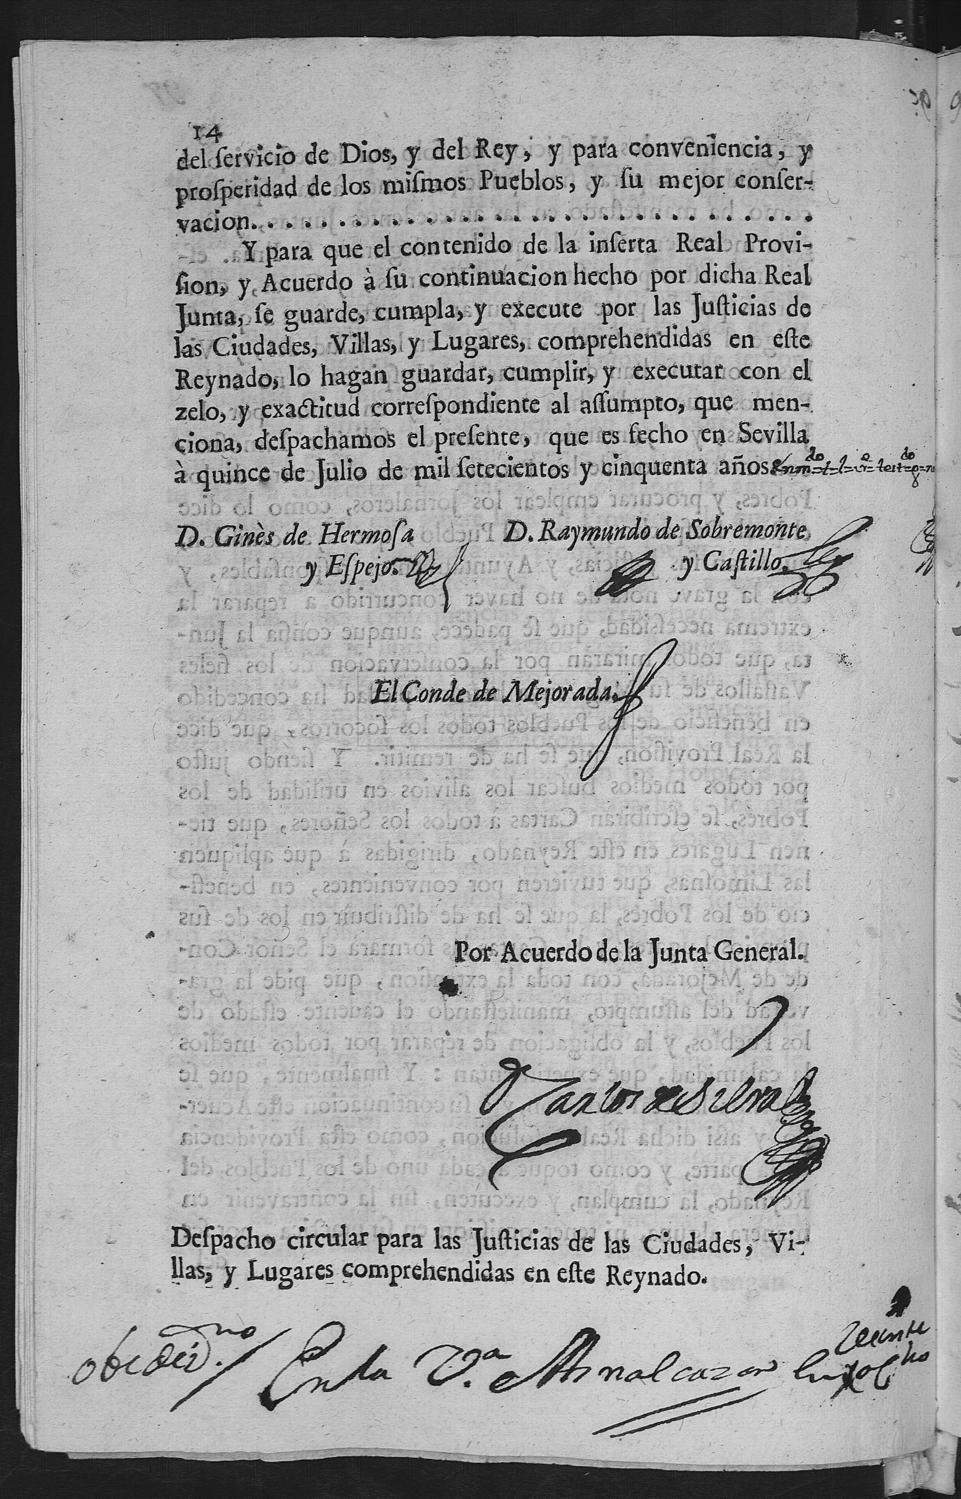 14
del ſervicio de Dios, y del Rey, y para conveniencia, y
proſperidad de los miſmos Pueblos, y ſu mejor conſer-
vacion. . . . . . . . . . . . . . . . . . . . . . . . . . . . . .
Y para que el contenido de la inſerta Real Provi-
ſion, y Acuerdo à ſu continuacion hecho por dicha Real
Junta, ſe guarde, cumpla, y execute por las Juſticias de
las Ciudades, Villas, y Lugares, comprehendidas en eſte
Reynado, lo hagan guardar, cumplir, y executar con el
zelo, y exactitud correſpondiente al aſſumpto, que men-
ciona, deſpachamos el preſente, que es fecho en Sevilla
à quince de Julio de mil ſetecientos y cinquenta años
D. Ginès de Hermoſa
y Eſpejo.
D. Raymundo de Sobremonte
y Caſtillo.
El Conde de Mejorada.
Por Acuerdo de la Junta General.
Carlos de Silva
Deſpacho circular para las Juſticias de las Ciudades, Vi-
llas, y Lugares comprehendidas en eſte Reynado.
En la V.ª Almalcazar